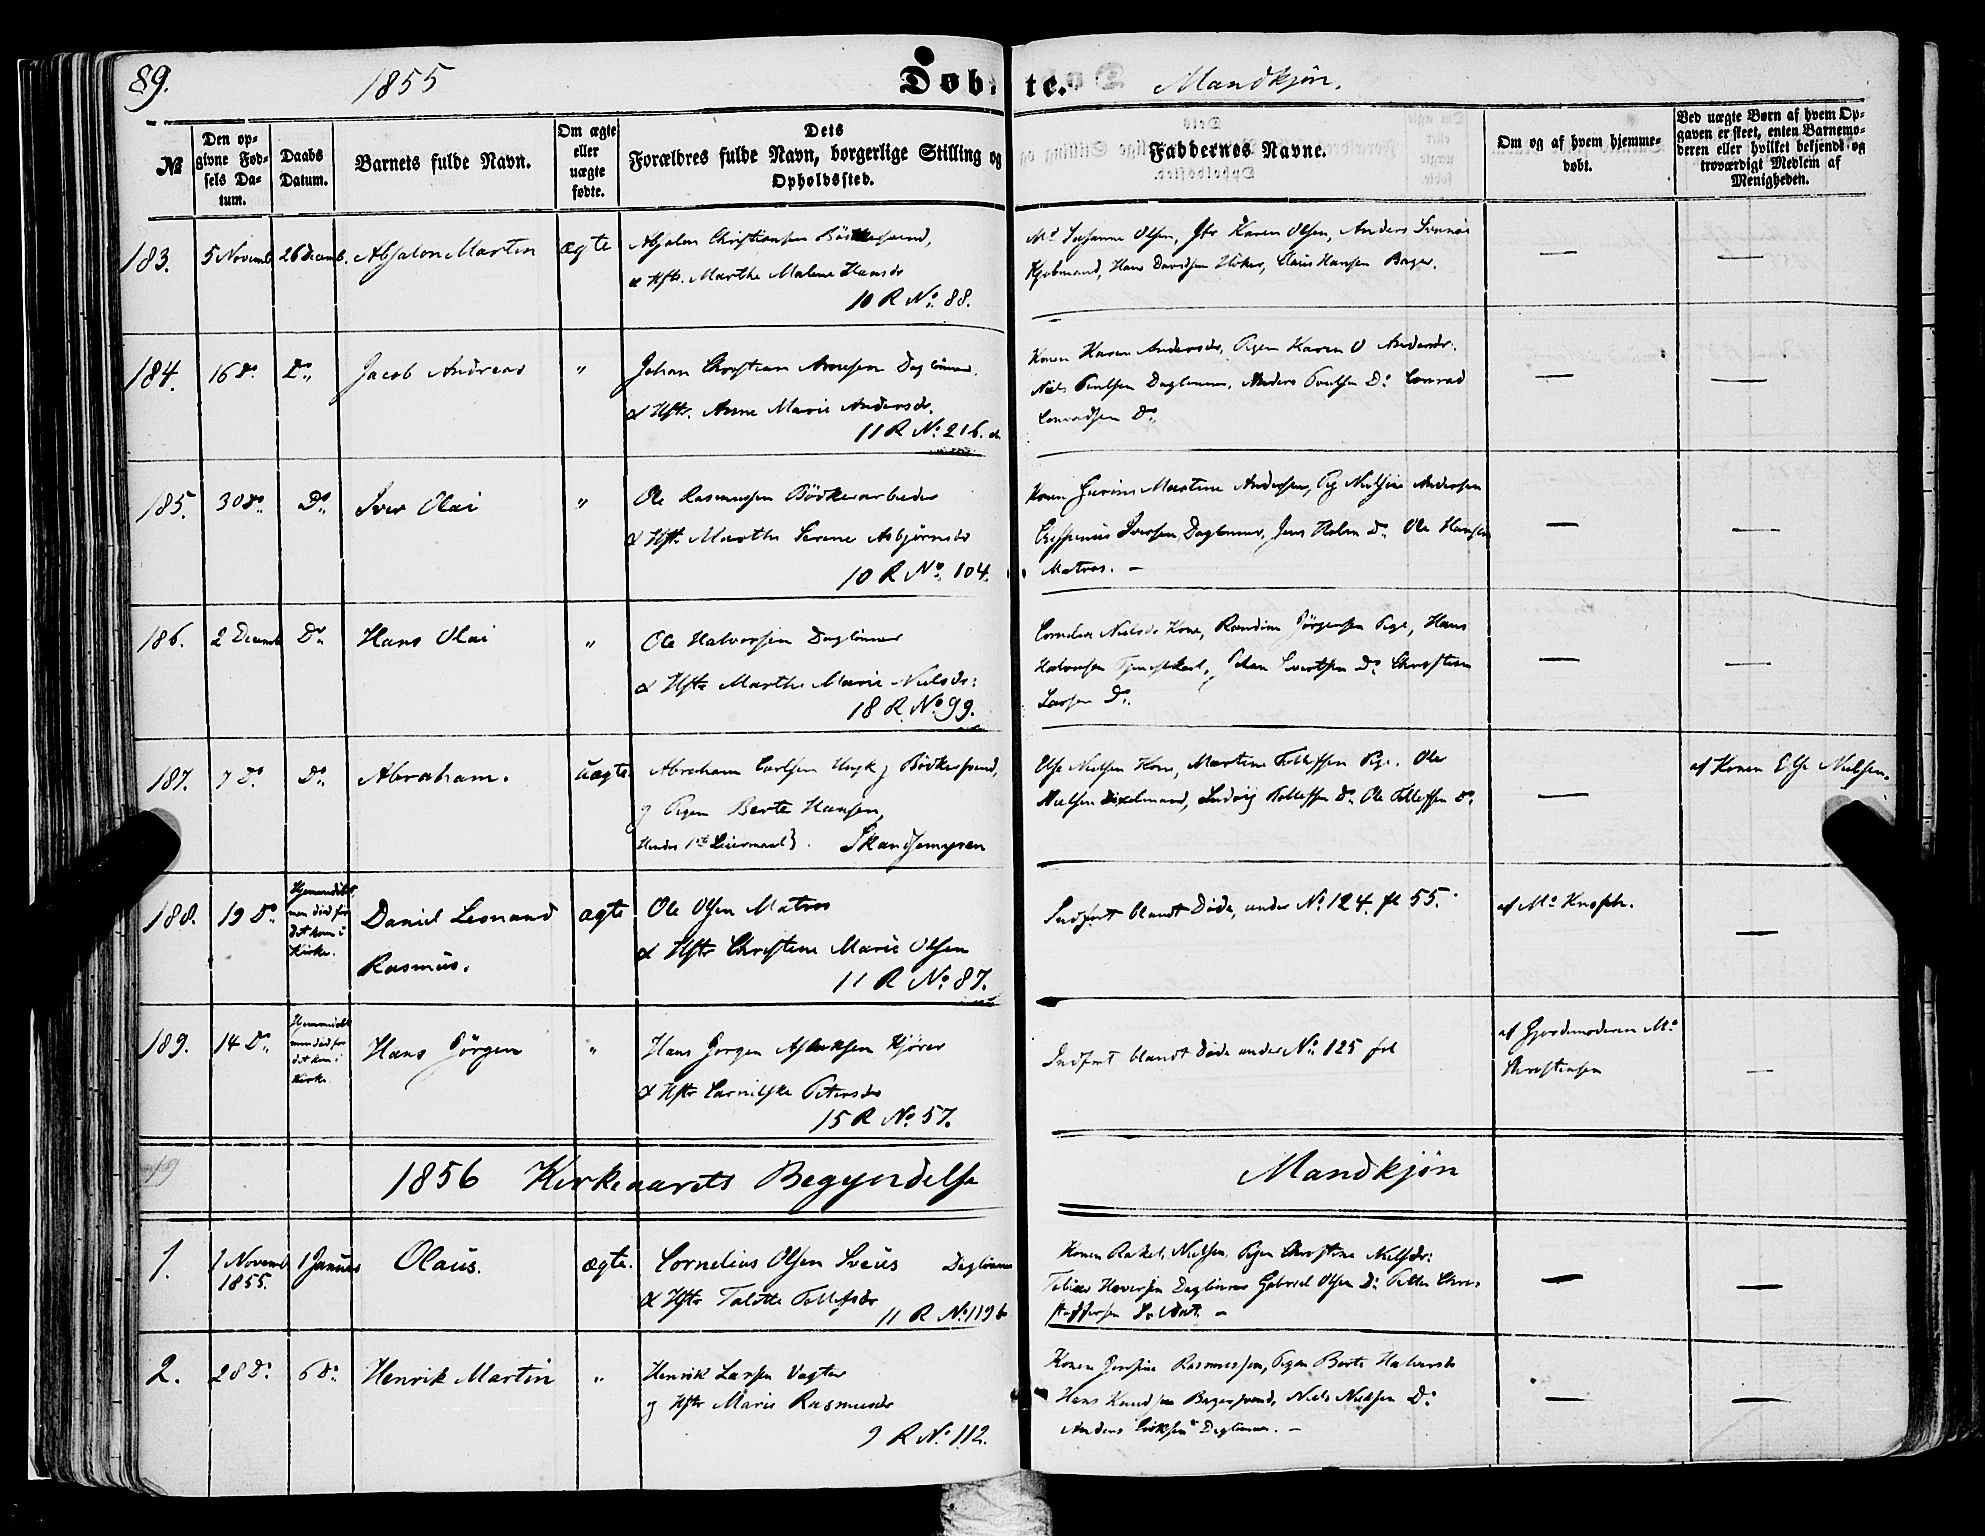 89. 1855 Døbte. Mandkjøn.
№
Den opgivne Fødsels Datum.
Daabs Datum.
Barnets fulde Navn.
Om ægte eller uægte fødte.
Dets Forældres fulde Navn, borgerlige Stilling og Opholdssted.
Faddernes Navne.
Om og af hvem hjemmedøbt.
Ved uægte Børn af hvem Opgaven er skeet, enten Barnemoderen eller hvilket bekjendt og troværdigt Medlem af Menigheden.
183. 5 Novemb 26 Decemb. Absalon Martin ægte Absalon Christiansen Bödkersvend,
& Hstr. Marthe Malene Hansdr
10 R No. 88.
Md Susanne Olsen, Jfr Karen Olsen, Anders
Kjøbmand, Hans Davidsen Höker, Claus Hansen Bager. — —
184. 16 Do. Do. Jacob Andreas " Johan Christian Arnesen Daglönner.
& Hstr. Anne Marie Andersdr.
11 R No. 216.
Konen Karen Andersdr, Pigen Karen O Andersdr.
Niels Poulsen Daglönner, Anders Poulsen Do. Conrad
Conradsen Do. — —
185. 30 Do. Do. Iver Olai " Ole Rasmussen Bödkerarbeider
& Hstr. Marthe Serene Asbjørnsdr
10 R No. 104.
Konen Gurine Martine Andersen, Pig Nielsine Andersen
Iversen Daglönner, Jens Holm Do. Ole Hansen
Matros. — — —
186. 2 Decemb Do. Hans Olai " Ole Halvorsen Daglönner
& Hstr Marthe Marie Nielsdr:
18 R. No. 99.
Cornelia Nielsdr Kone, Randine Jörgensen Pige, Hans
Halvorsen Tjenestkarl, Johan Do. Christian
Larsen Do. — —
187. 7 Do. Do. Abraham. uægte Abraham Carlsen Ungk, Bödkersvend,
og Pigen Berte Hansen,
Hendes 1ste Leiermaal}. Skandsemyren
Else Nielsen Kone, Martine Tollefsen Pige. Ole
Nielsen Dixelmand, Ludvig Tollefsen Do. Ole Tollefsen Do. — af Konen Else Nielsen.
188. 19 Do. Hjemmedöbt, men död för det kom i Kirke. Daniel Leonard
Rasmus. ægte Ole Olsen Matros
& Hstr Christine Marie Olsen
11 R No. 87.
Indført blandt Döde, under No. 124. fl 55. af Md Knoph. —
189. 14 Do. Hjemmedöbt men död for det kom i Kirke Hans Jörgen " Hans Jorgen Aslaksen Kjörer
& Hstr Petersdr
15 R No. 57.
Indfört blandt Döde under No. 125 fol af Gjordemoderen Md
Christensen —
1856 Kirkeaarets Begyndelse Mandkjön
1. 1 Novemb 1855. 1 Januar Olaus. ægte. Cornelius Olsen Sveüs Daglönner
& Hstr Talette Tollefsdr
11 R No. 119 b
Konen Rakel Nielsen, Pigen Christine Nielsdr:
Tobias Daglönner Gabriel Olsen Do. Petter Chri-
stoffersen Soldat. — — —
2. 28 Do. 6 Do. Henrik Martin " Henrik Larsen Vægter
og Hstr Marie Rasmusdr
9 R No. 112.
Konen Josefine Rasmussen, Pigen Berte Halvorsdr
Hans Knudsen Bagersvend, Niels Nielsen Do.
Anders Eriksen Daglönner. — — —